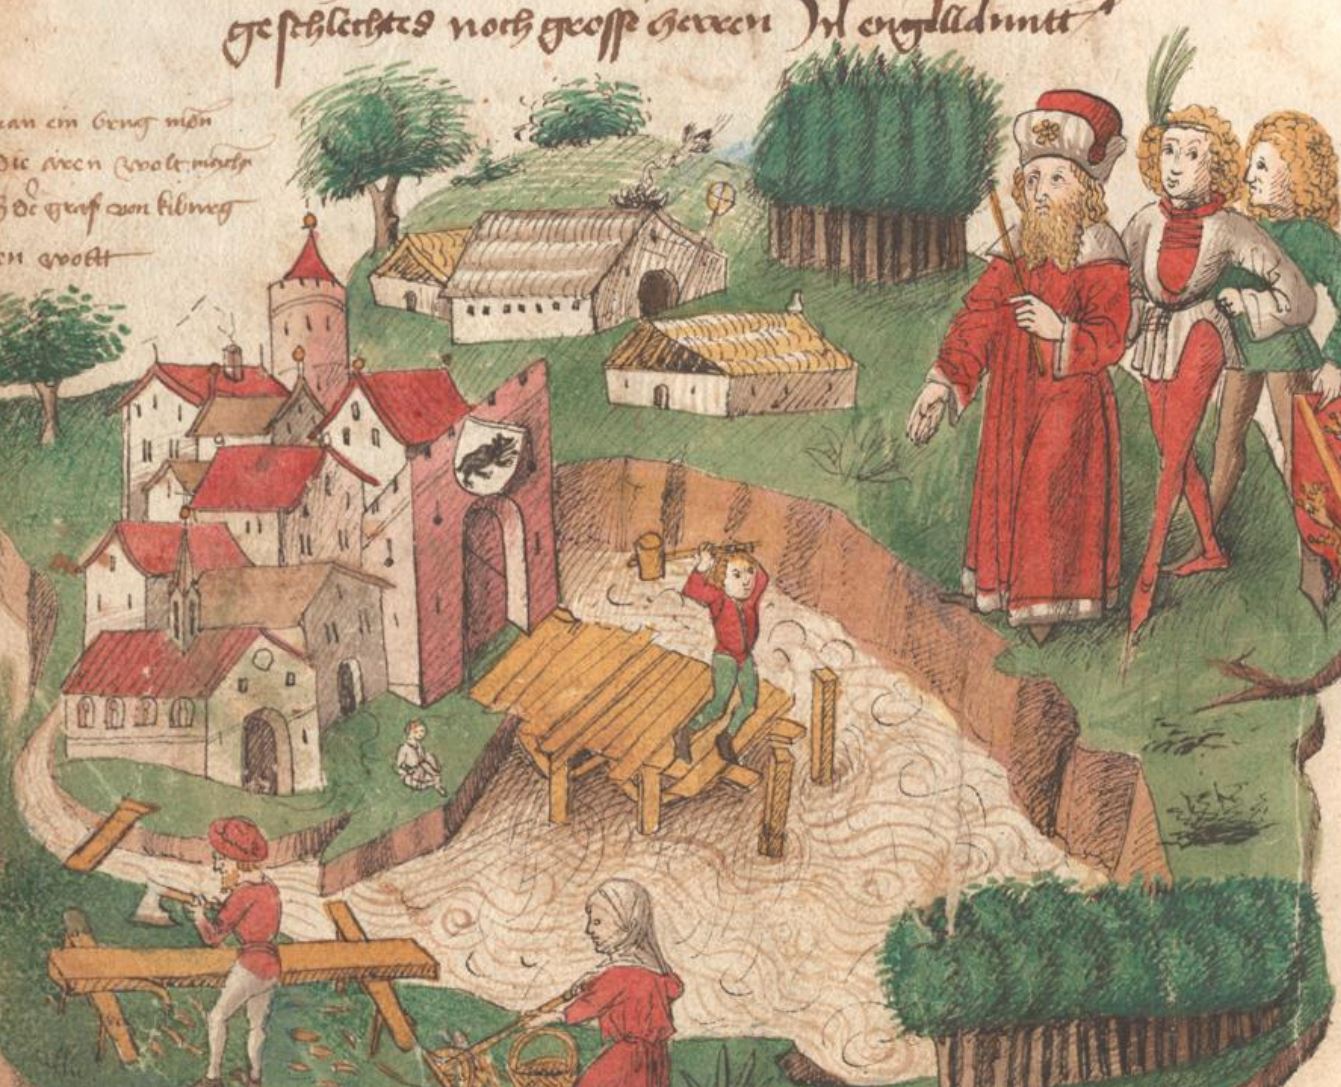 geschlechtes noch grosse herren Jn engillanntt
an ein brug mon
die aren wolt machen
der graf von kiburg
en wollt